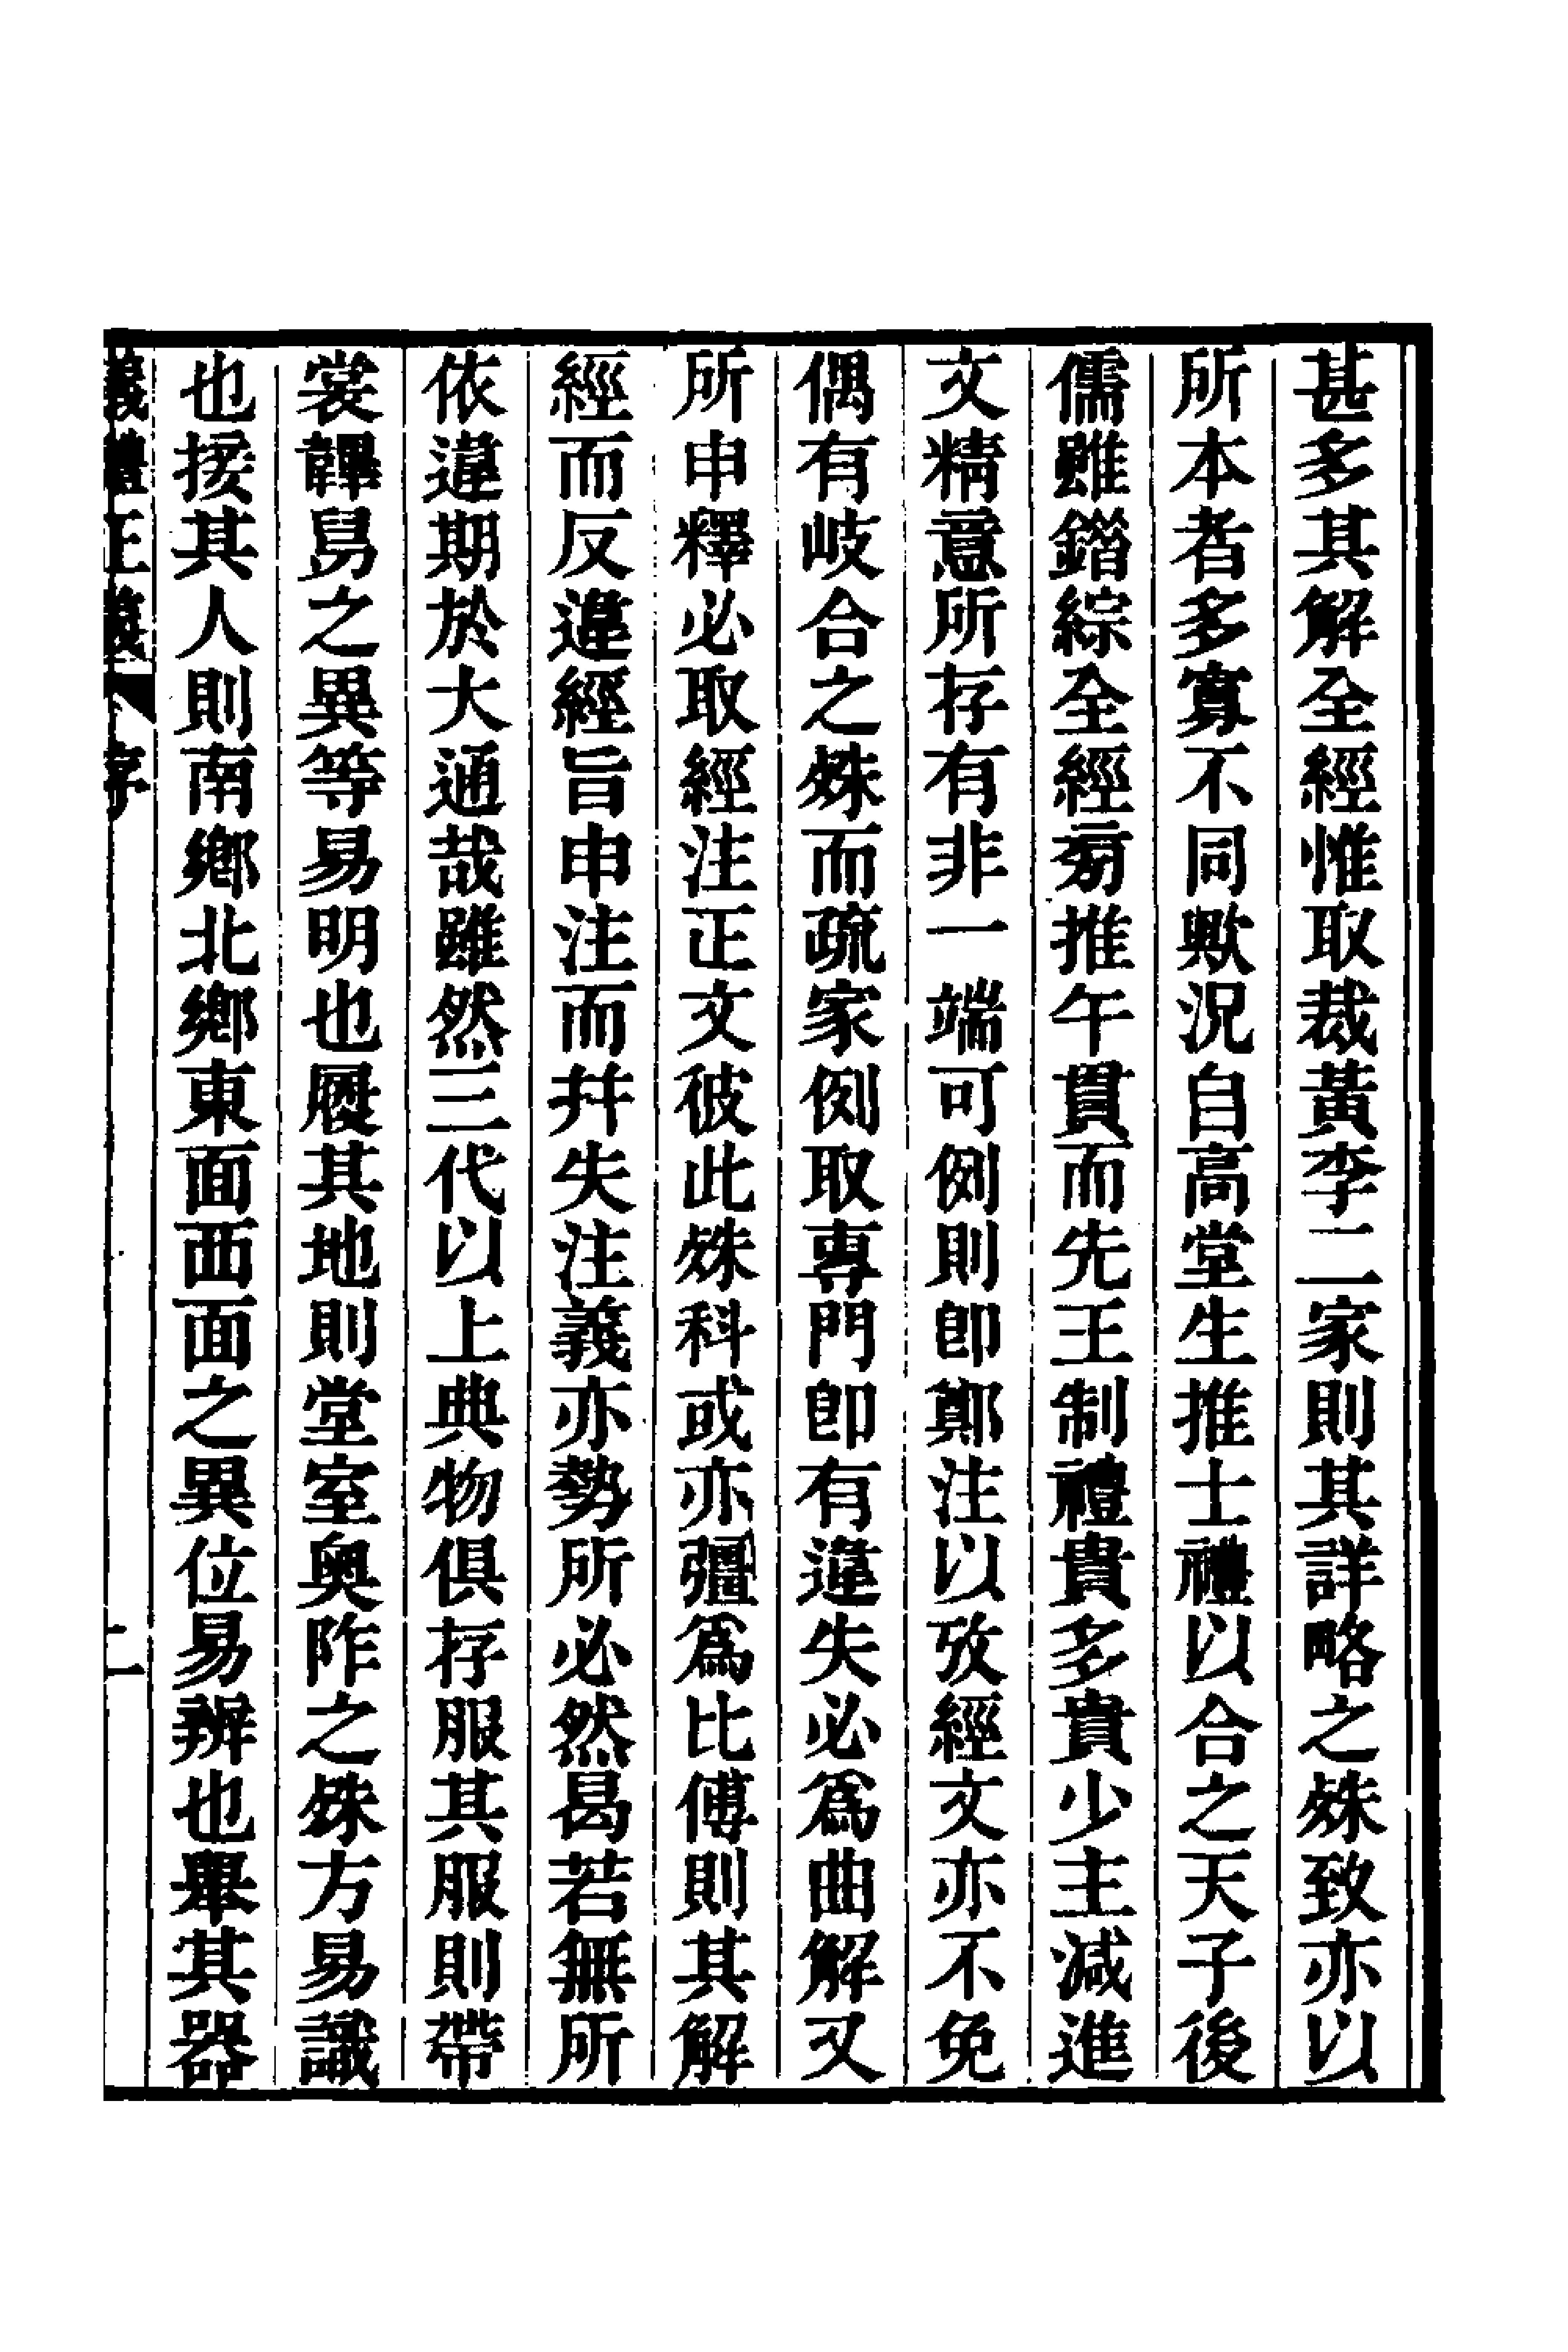 甚多其解全經惟取裁黃李二家則其詳略之殊致亦以
所本者多寡不同歟況自高堂生推士禮以合之天子後
儒雖錯綜全經㫄推午貫而先王制禮貴多貴少主減進
文精意所存有非一端可例則卽鄭注以攷經文亦不免
偶有岐合之殊而疏家例取專門卽有違失必爲曲解又
所申釋必取經注正文彼此殊科或亦彊爲比傅則其解
經而反違經旨申注而幷失注義亦勢所必然曷若無所
依違期於大通哉雖然三代以上典物俱存服其服則帶
裳韠舄之異等易明也履其地則堂室奧阼之殊方易識
也接其人則南鄉北鄉東面西面之異位易辨也舉其器
義禮正義 序 二